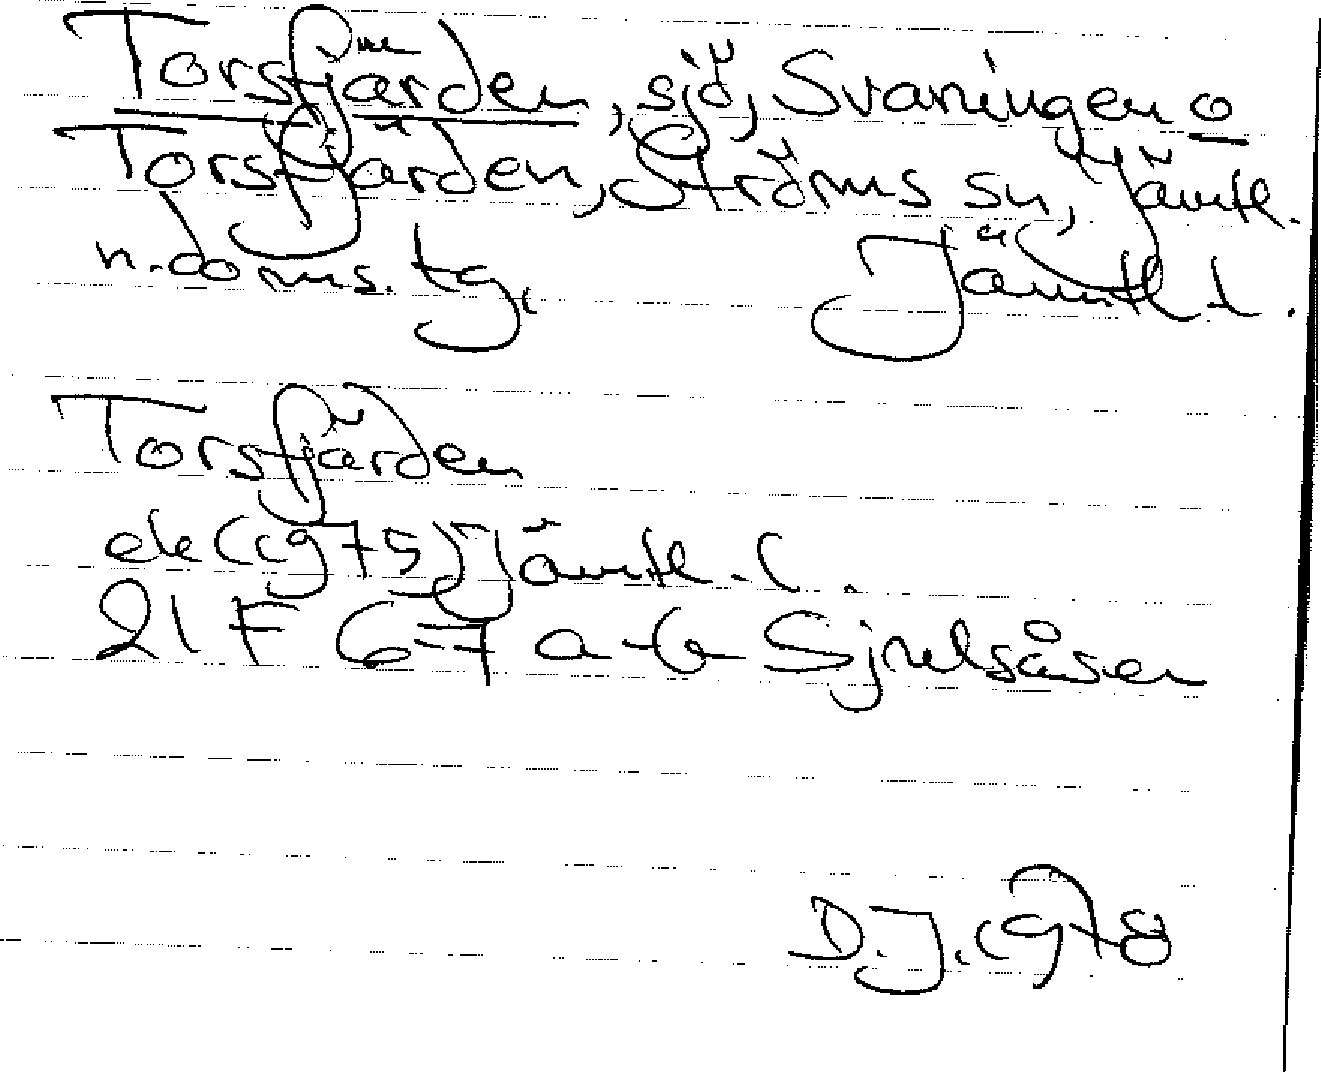 Torsfjärden, sjö, Svaningen o
Torsfjärden, Ströms sn, Jämtl.
n. doms. tg, Jämtl l.
Torsfjärden
ek (1975) Jämtl. l.
21 F 6-7 a-b Sjnelsåsen
D.J. 1978